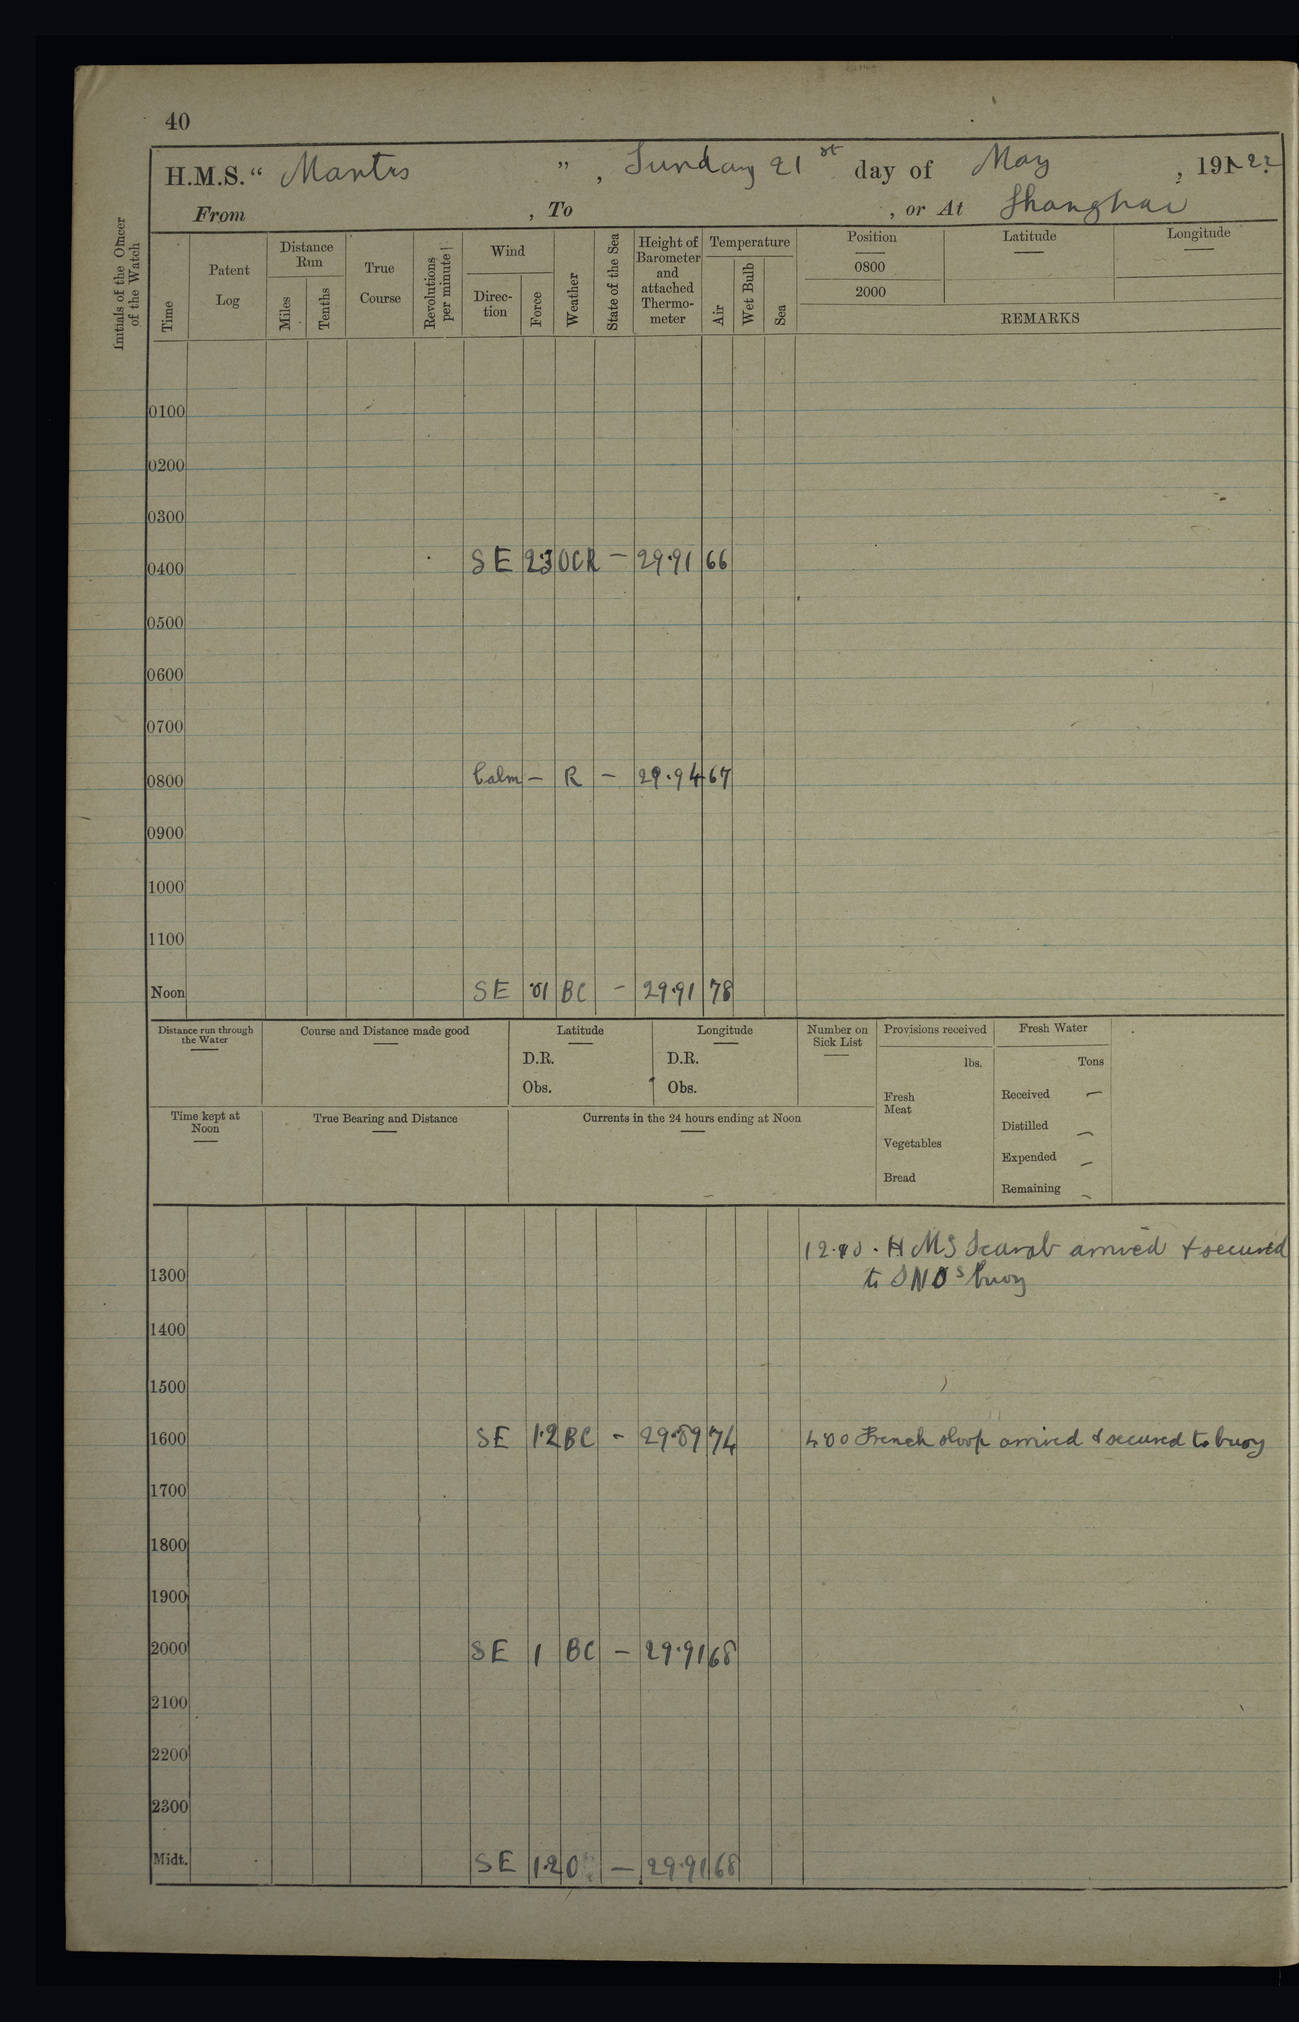 40
H.M.S. " Mantis ", Sunday 21st day of May, 191 22
From , To , or At Shanghai
Initials of the Officer of the Watch
Time
Patent Log
Distance Run
Miles
Tenths
True Course
Revolutions per minute
Wind
Direction
Force
Weather
State of the Sea
Height of Barometer and attached Thermometer
Temperature
Air
Wet Bulb
Sea
Position
0800
2000
Latitude
Longitude
REMARKS
0100
0200
0300
0400 SE 2.3 OCR — 29.91 66
0500
0600
0700
0800 Calm — R — 29.94 67
0900
1000
1100
Noon SE 01 BC — 29.91 78
Distance run through the Water
Course and Distance made good
Latitude
D.R.
Obs.
Longitude
D.R.
Obs.
Number on Sick List
Provisions received
lbs.
Fresh Meat
Vegetables
Bread
Fresh Water
Tons
Received —
Distilled —
Expended —
Remaining —
Time kept at Noon
True Bearing and Distance
Currents in the 24 hours ending at Noon
HMS Scarab arrived & secured
1300 to SNOs buoy
1400
1500
1600 SE 1.2 BC - 29.89 74 4.00 French sloop arrived & secured to buoy
1700
1800
1900
2000 SE 1 BC — 29.91 68
2100
2200
2300
Midt. SE 1.2 O — 29.91 68